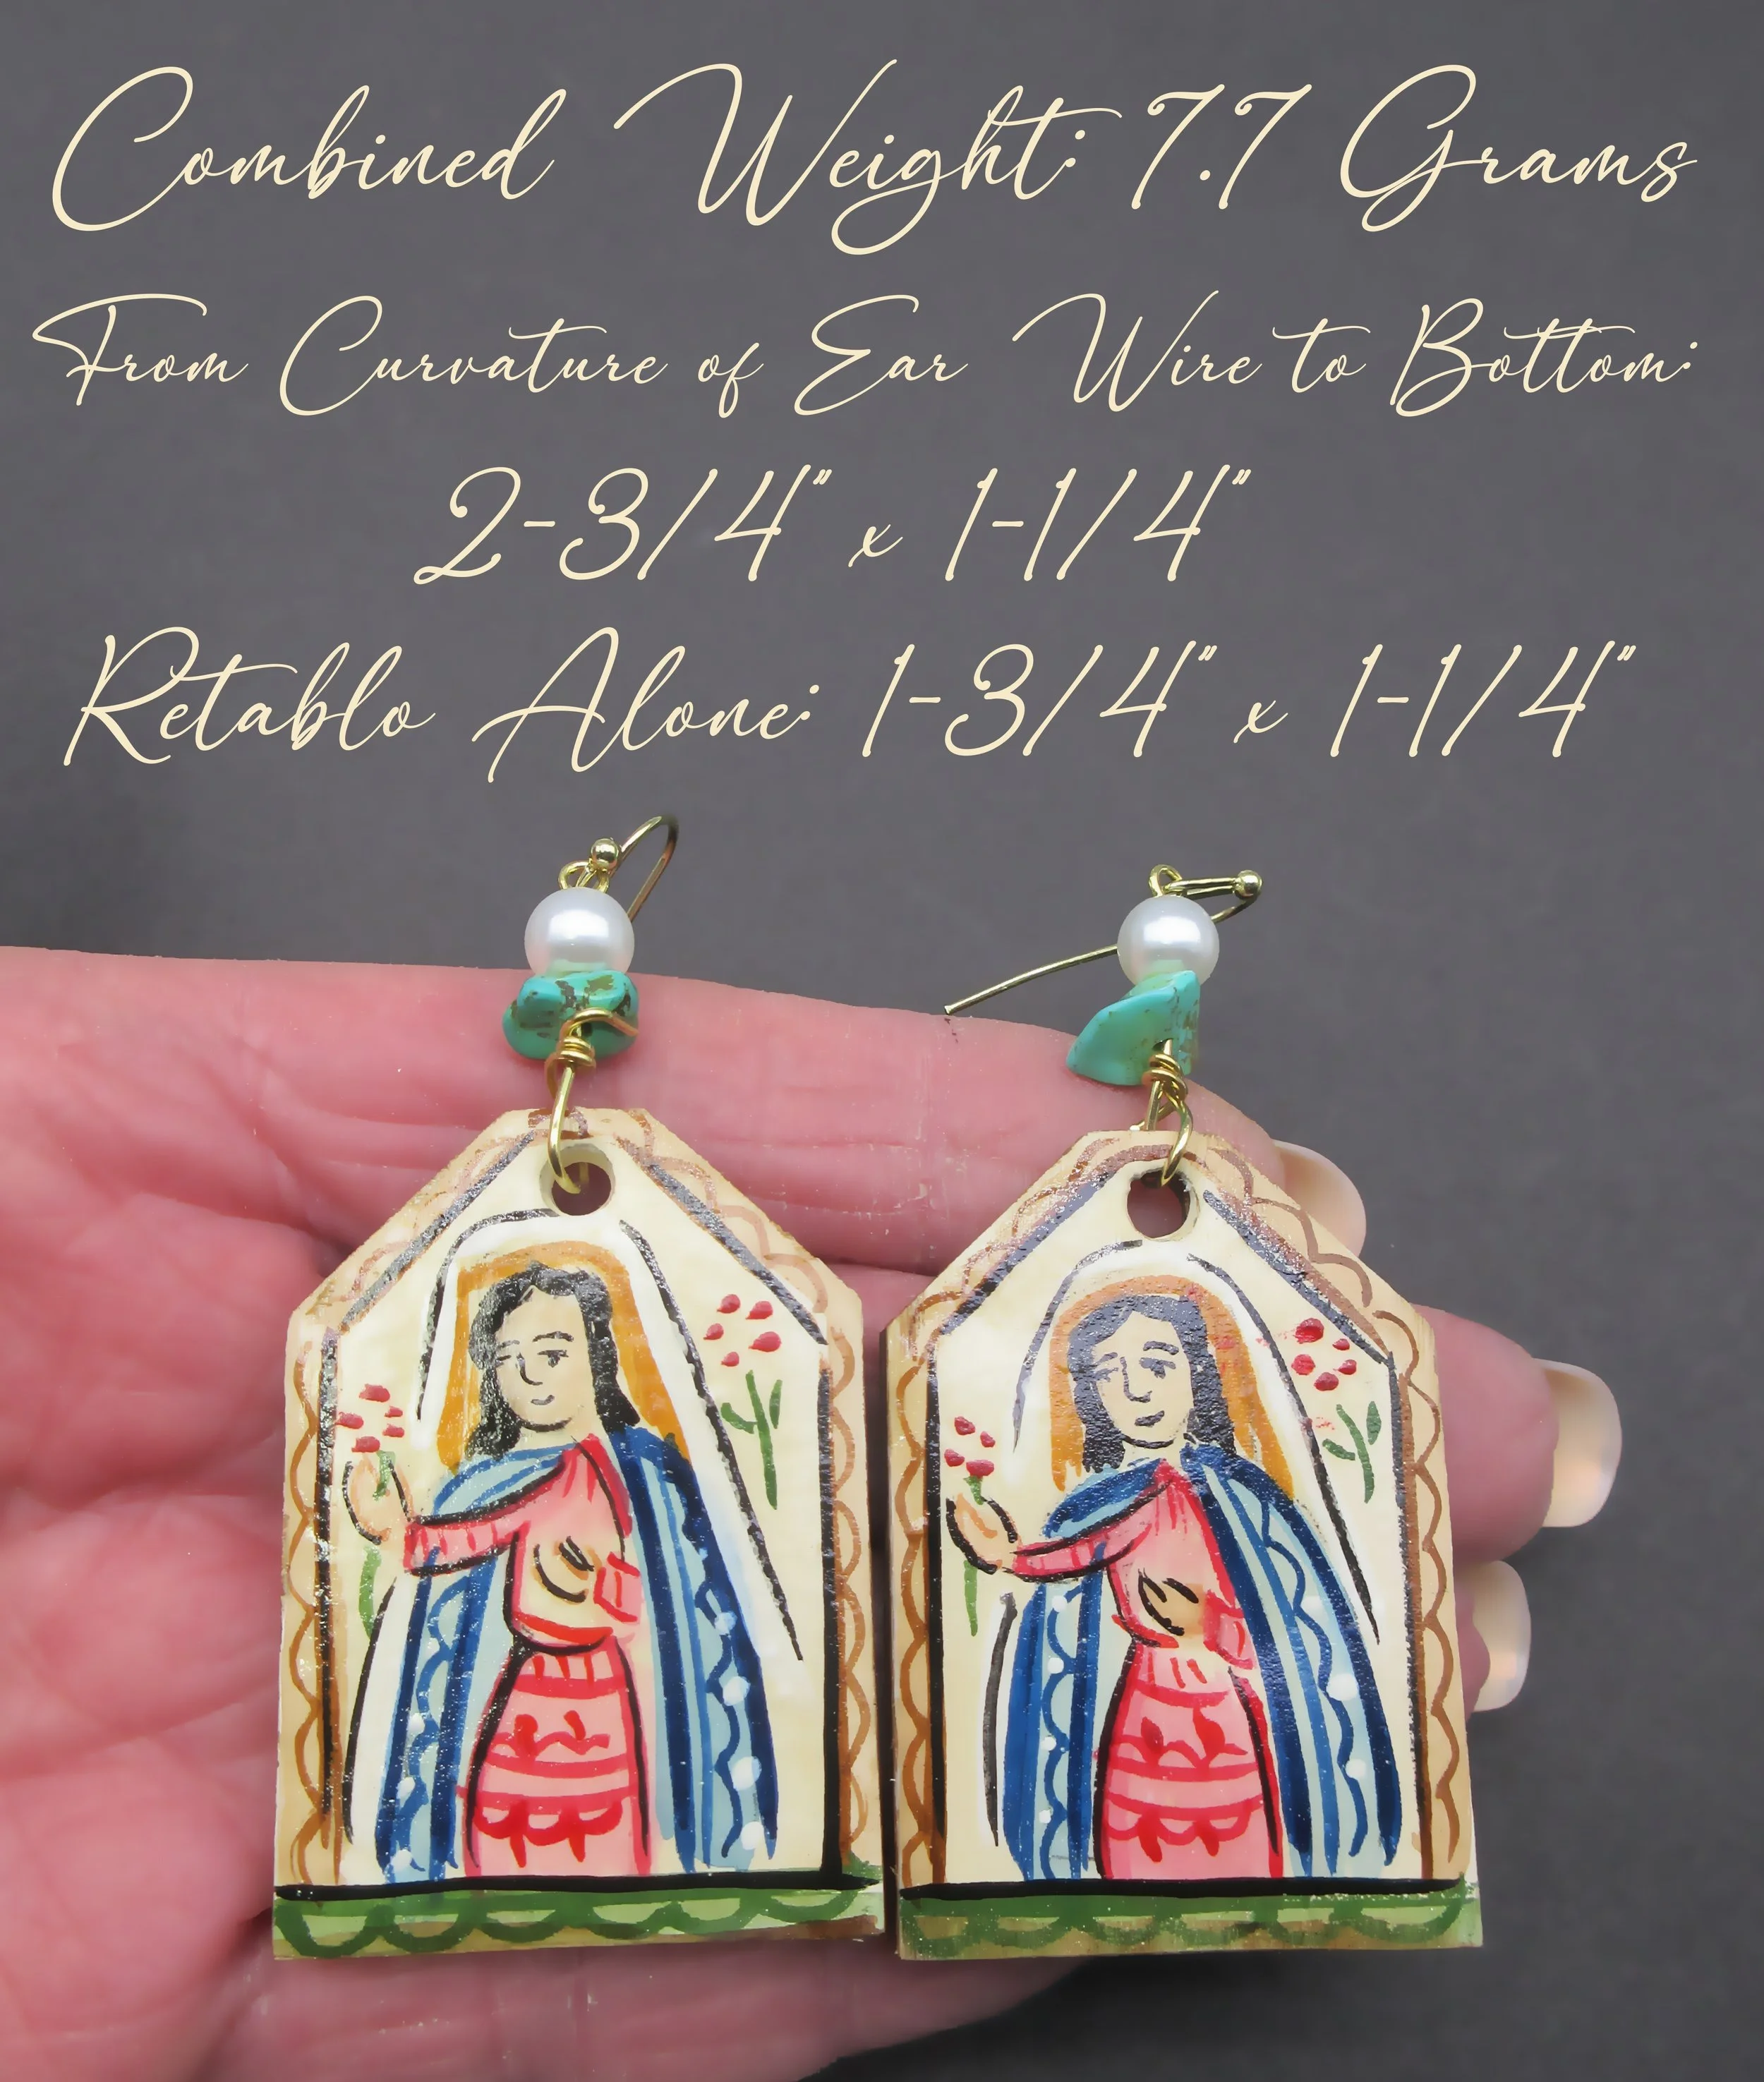 Combined Weight: 7.7 Grams
From Curvature of Ear Wire to Bottom:
2-3/4" x 1-1/4"
Retablo Alone: 1-3/4" x 1-1/4"